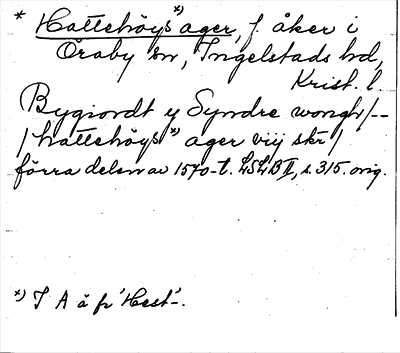 * Hattehöys *) ager, f. åker i
Öraby sn, Ingelstads hd,
Krist. l.
Bygiordt y Syndre wongh /--
/ hattehöys *) ager viij skr /
förra delen av 1570-t. LSLB II, s. 315. orig.
*) I A å fr 'Hest'-.